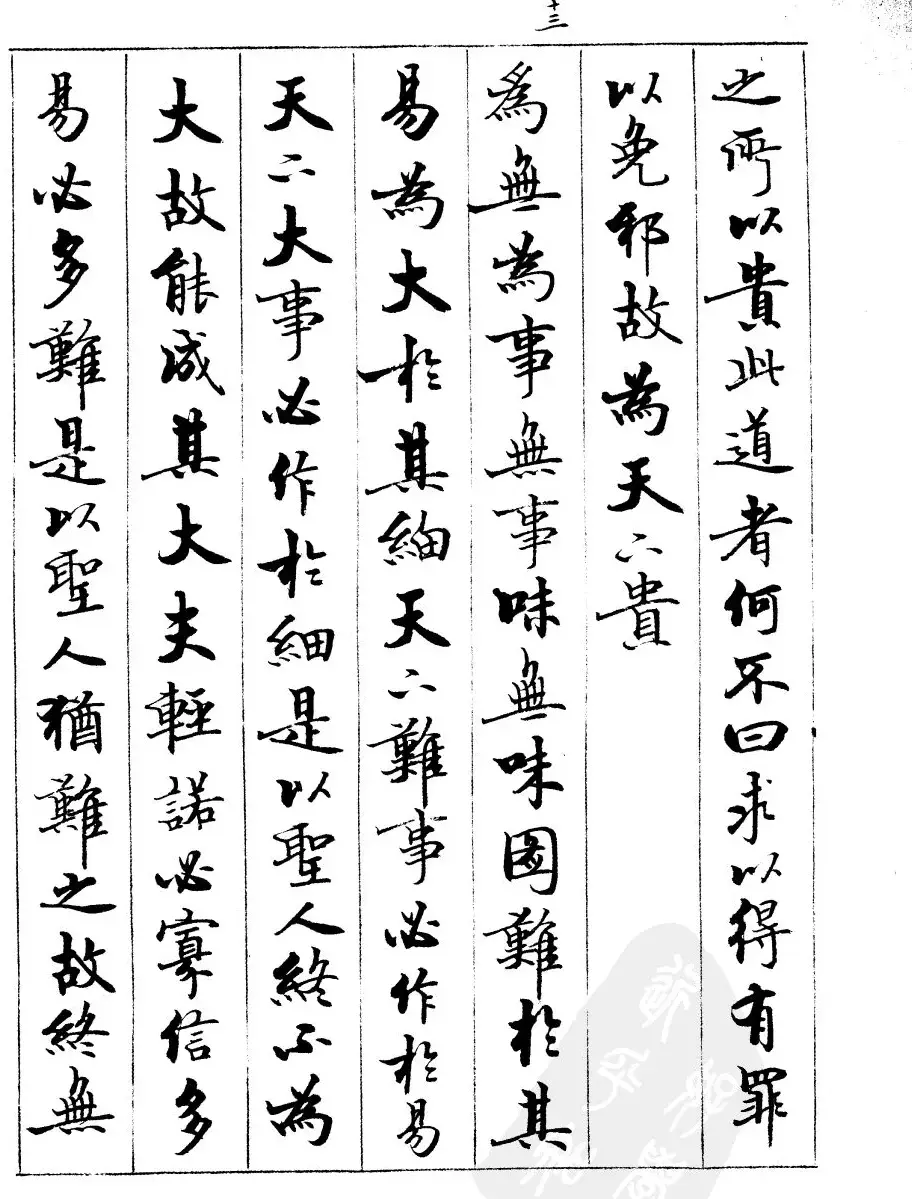 十三
之所以貴此道者何不曰求以得有罪
以免邪故為天下貴
為無為事無事味無味圖難於其
易為大於其細天下難事必作於易
天下大事必作於細是以聖人終不為
大故能成其大夫輕諾必寡信多
易必多難是以聖人猶難之故終無